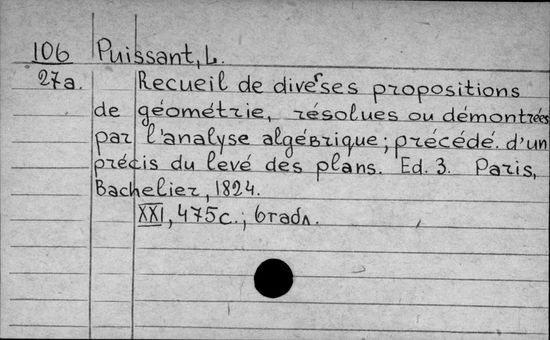 106 Puissant, L.
27a. Recueil de diverses propositions
de géométrie, résolues ou démontrées
par l'analyse algébrique; précédé d'un
précis du levé des plans. Ed. 3. Paris,
Bachelier, 1824.
XXI, 475c.; 6табл.